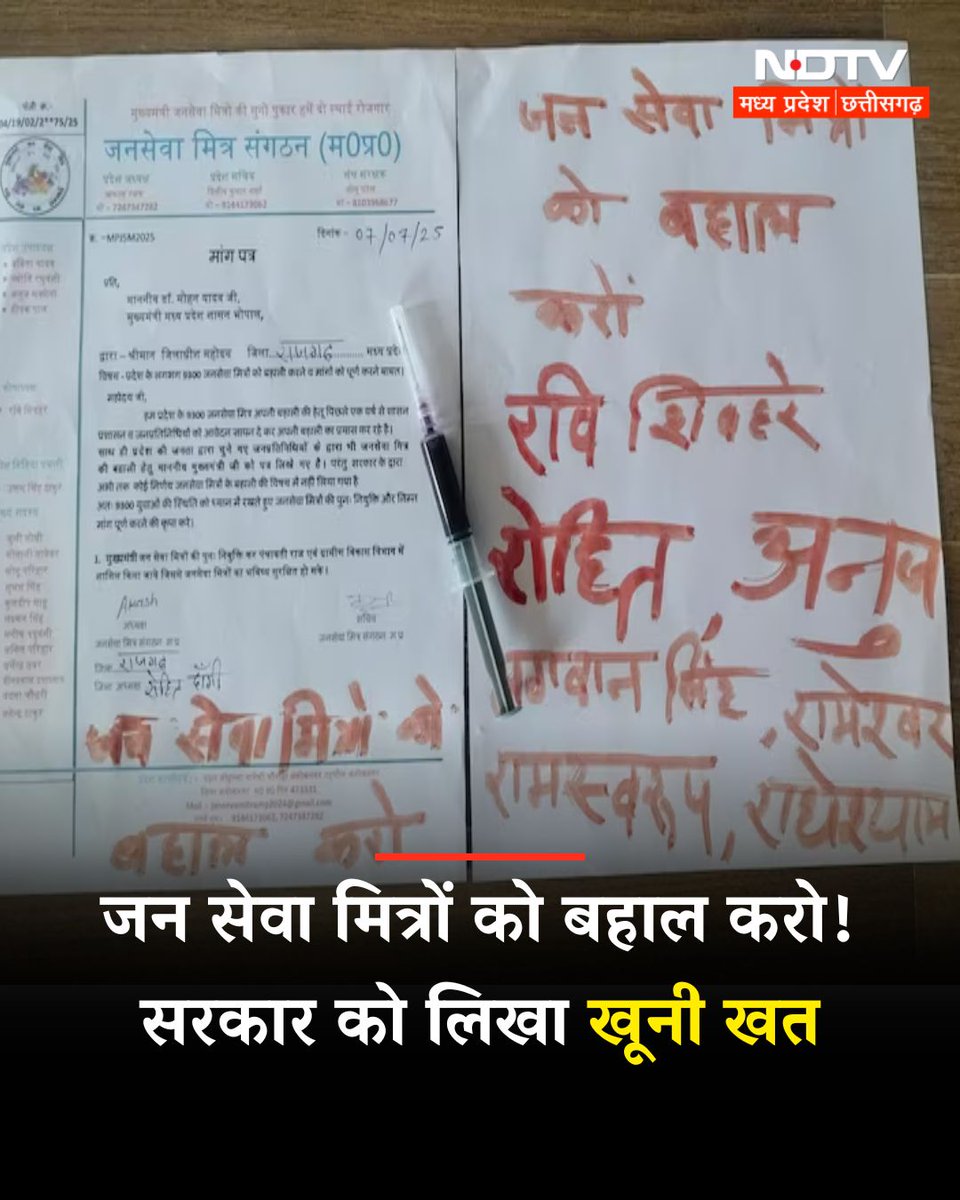 NDTV
मध्य प्रदेश | छत्तीसगढ़
04/19/02/2**75/25
मुख्यमंत्री जनसेवा मित्रों की सुनो पुकार हमें दो स्थाई रोजगार
जनसेवा मित्र संगठन (म0प्र0)
प्रदेश अध्यक्ष
प्रदेश सचिव
क्र. –MPJSM2025
दिनांक- 07/07/25
मांग पत्र
प्रति,
माननीय डॉ. मोहन यादव जी,
मुख्यमंत्री मध्य प्रदेश शासन भोपाल,
द्वारा – श्रीमान जिलाधीश महोदय जिला... राजगढ़ ........... मध्य प्रदे
विषय - प्रदेश के लगभग 9300 जनसेवा मित्रों को बहाली करने व मांगों को पूर्ण करने बाबत।
महोदय जी,
हम प्रदेश के 9300 जनसेवा मित्र अपनी बहाली की हेतु पिछले एक वर्ष से शासन
प्रशासन व जनप्रतिनिधियों को आवेदन ज्ञापन दे कर अपनी बहाली का प्रयास कर रहे है।
साथ ही प्रदेश की जनता द्वारा चुने गए जनप्रतिनिधियों के द्वारा भी जनसेवा मित्र
की बहाली हेतु माननीय मुख्यमंत्री जी को पत्र लिखे गए है। परंतु सरकार के द्वारा
अभी तक कोई निर्णय जनसेवा मित्रों के बहाली की विषय में नही लिया गया है
अतः 9300 युवाओं की स्थिति को ध्यान में रखते हुए जनसेवा मित्रों की पुनः नियुक्ति और निम्न
मांग पूर्ण करने की कृपा करे।
1. मुख्यमंत्री जन सेवा मित्रों की पुनः नियुक्ति कर पंचायती राज एवं ग्रामीण विकास विभाग में
शामिल किया जाये जिससे जनसेवा मित्रों का भविष्य सुरक्षित हो सके।
Akash
अध्यक्ष
जनसेवा मित्र संगठन म प्र
सचिव
जनसेवा मित्र संगठन म प्र
जिला राजगढ़
जिला अध्यक्ष रोहित दाँगी
जन सेवा मित्रो को
बहाल करो
जन सेवा मित्रो
को बहाल
करों
रवि शिवहरे
रोहित अनुज
भगवान सिंह, रामेश्वर
रामस्वरूप, राधेश्याम
जन सेवा मित्रों को बहाल करो!
सरकार को लिखा खूनी खत